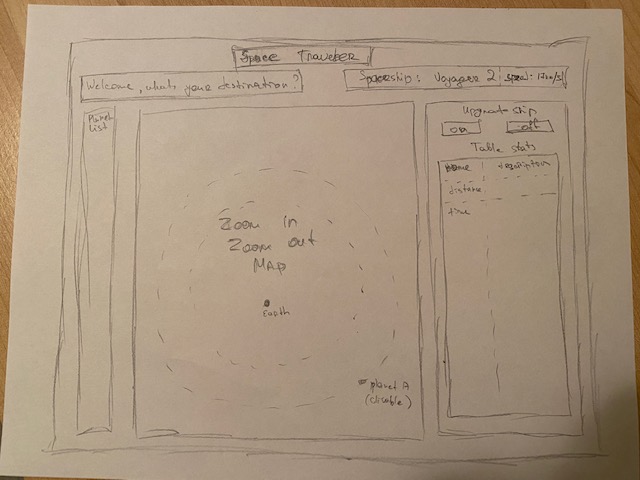 Space Traveler
Welcome, whats your destination?
Spaceship: Voyager 2
speed: 17km/s
Planet
list
Zoom in
Zoom out
MAP
Earth
planet A
(clicable)
Upgrade ship
on
off
Table stats
name description
distance
time